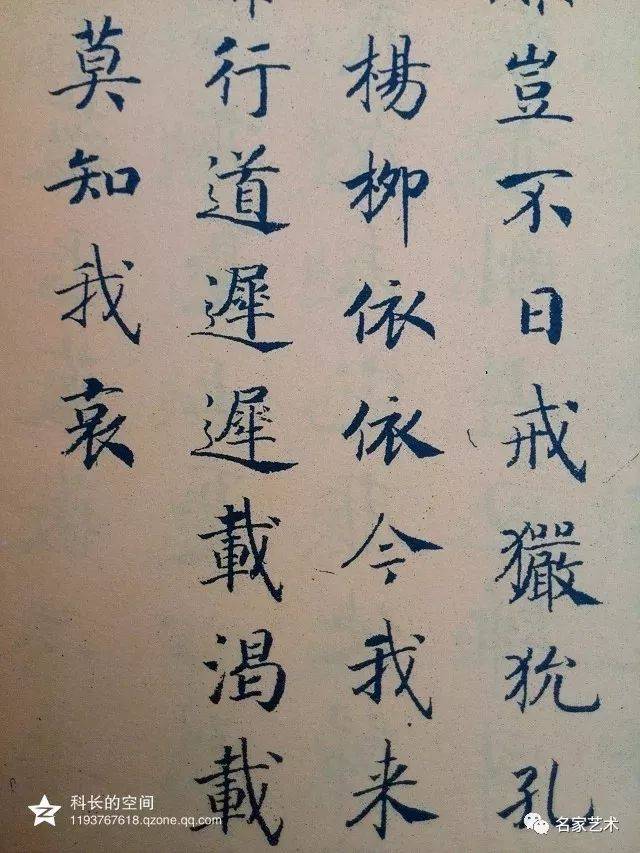 豈不日戒玁狁孔
楊柳依依今我来
行道遲遲載渴載
莫知我哀
科长的空间
1193767618.qzone.qq.com
名家艺术